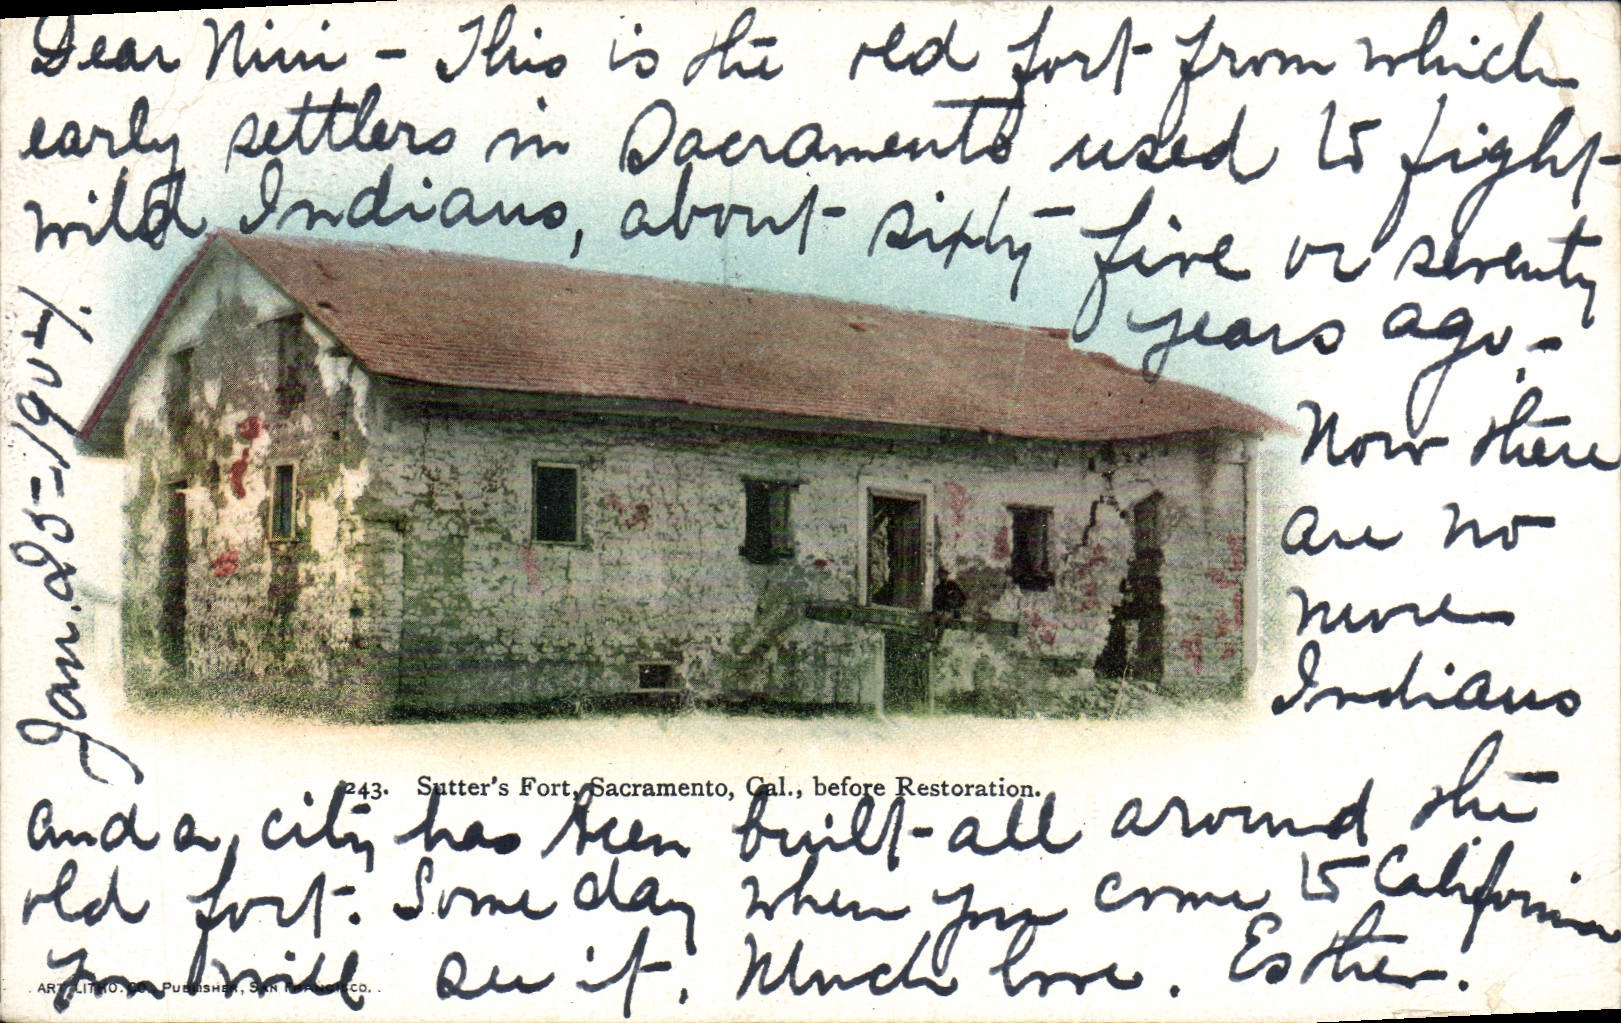 Dear Nini - This is the old fort from which
early settlers in Sacramento used to fight
wild Indians, about sixty five or seventy
years ago. -
Now there
are no
more
Indians
and a city has been built all around the
old fort. Some day when you come to California
you will see it. Much love. Esther.
Jan. 25-1907.
243. Sutter's Fort, Sacramento, Cal., before Restoration.
ART LITHO. CO., PUBLISHER, SAN FRANCISCO.